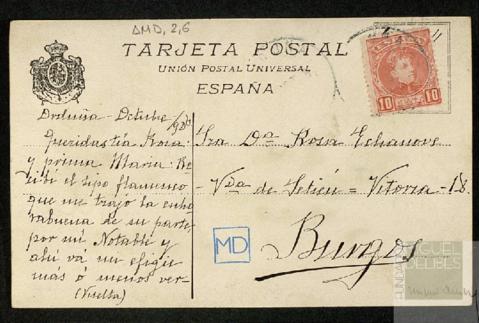 DMD, 2,6
TARJETA POSTAL
UNIÓN POSTAL UNIVERSAL
ESPAÑA
10 10
Orduña - Octubre
Queridas tía Rosa
y prima Maria: Re
cibí el tipo flamenco
que me trajo la enho
rabuena de su parte
por mi Notable y
ahí va mi efigie
más ó menos ver-
(Vuelta)
Sra Dª Rosa Echanove
Vda de Setién = Vitoria - 18.
Burgos
MD
FUNDACIÓN
MIGUEL
DELIBES